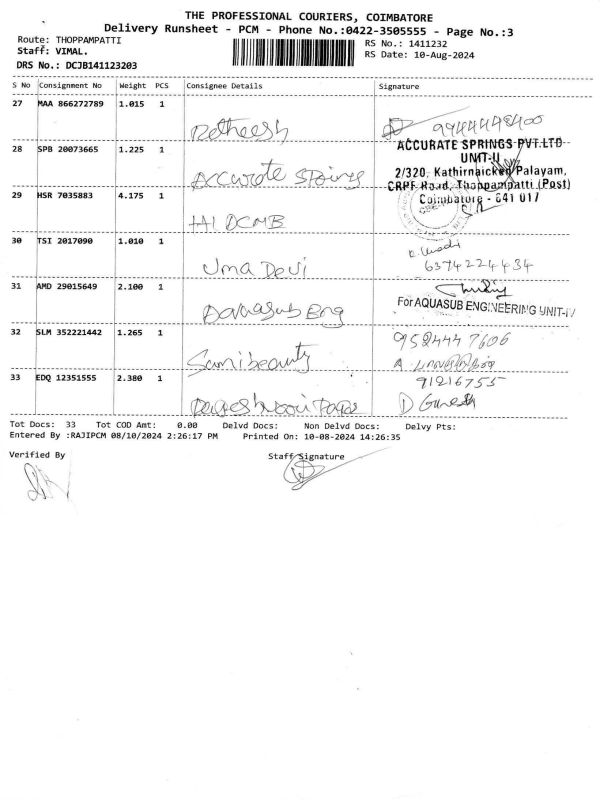 THE PROFESSIONAL COURIERS, COIMBATORE
Delivery Runsheet - PCM - Phone No.:0422-3505555 - Page No.:3
Route: THOPPAMPATTI
RS No.: 1411232
Staff: VIMAL.
RS Date: 10-Aug-2024
DRS No.: DCJB141123203
S No Consignment No Weight PCS Consignee Details Signature
27 MAA 866272789 1.015 1
Retheesh
28 SPB 20073665 1.225 1
Accurate Springs
ACCURATE SPRINGS PVT.LTD
UNIT-II
2/320, Kathirnaicken Palayam,
CRPF Road, Thoppampatti (Post)
Coimbatore - 641 017
29 HSR 7035883 4.175 1
30 TSI 2017090 1.010 1
Uma Devi
6374224434
31 AMD 29015649 2.100 1
For AQUASUB ENGINEERING UNIT-IV
32 SLM 352221442 1.265 1
Samibeauty
9524447606
33 EDQ 12351555 2.380 1
91216755
D Ganesh
Tot Docs: 33 Tot COD Amt: 0.00 Delvd Docs: Non Delvd Docs: Delvy Pts:
Entered By :RAJIPCM 08/10/2024 2:26:17 PM Printed On: 10-08-2024 14:26:35
Verified By
Staff Signature